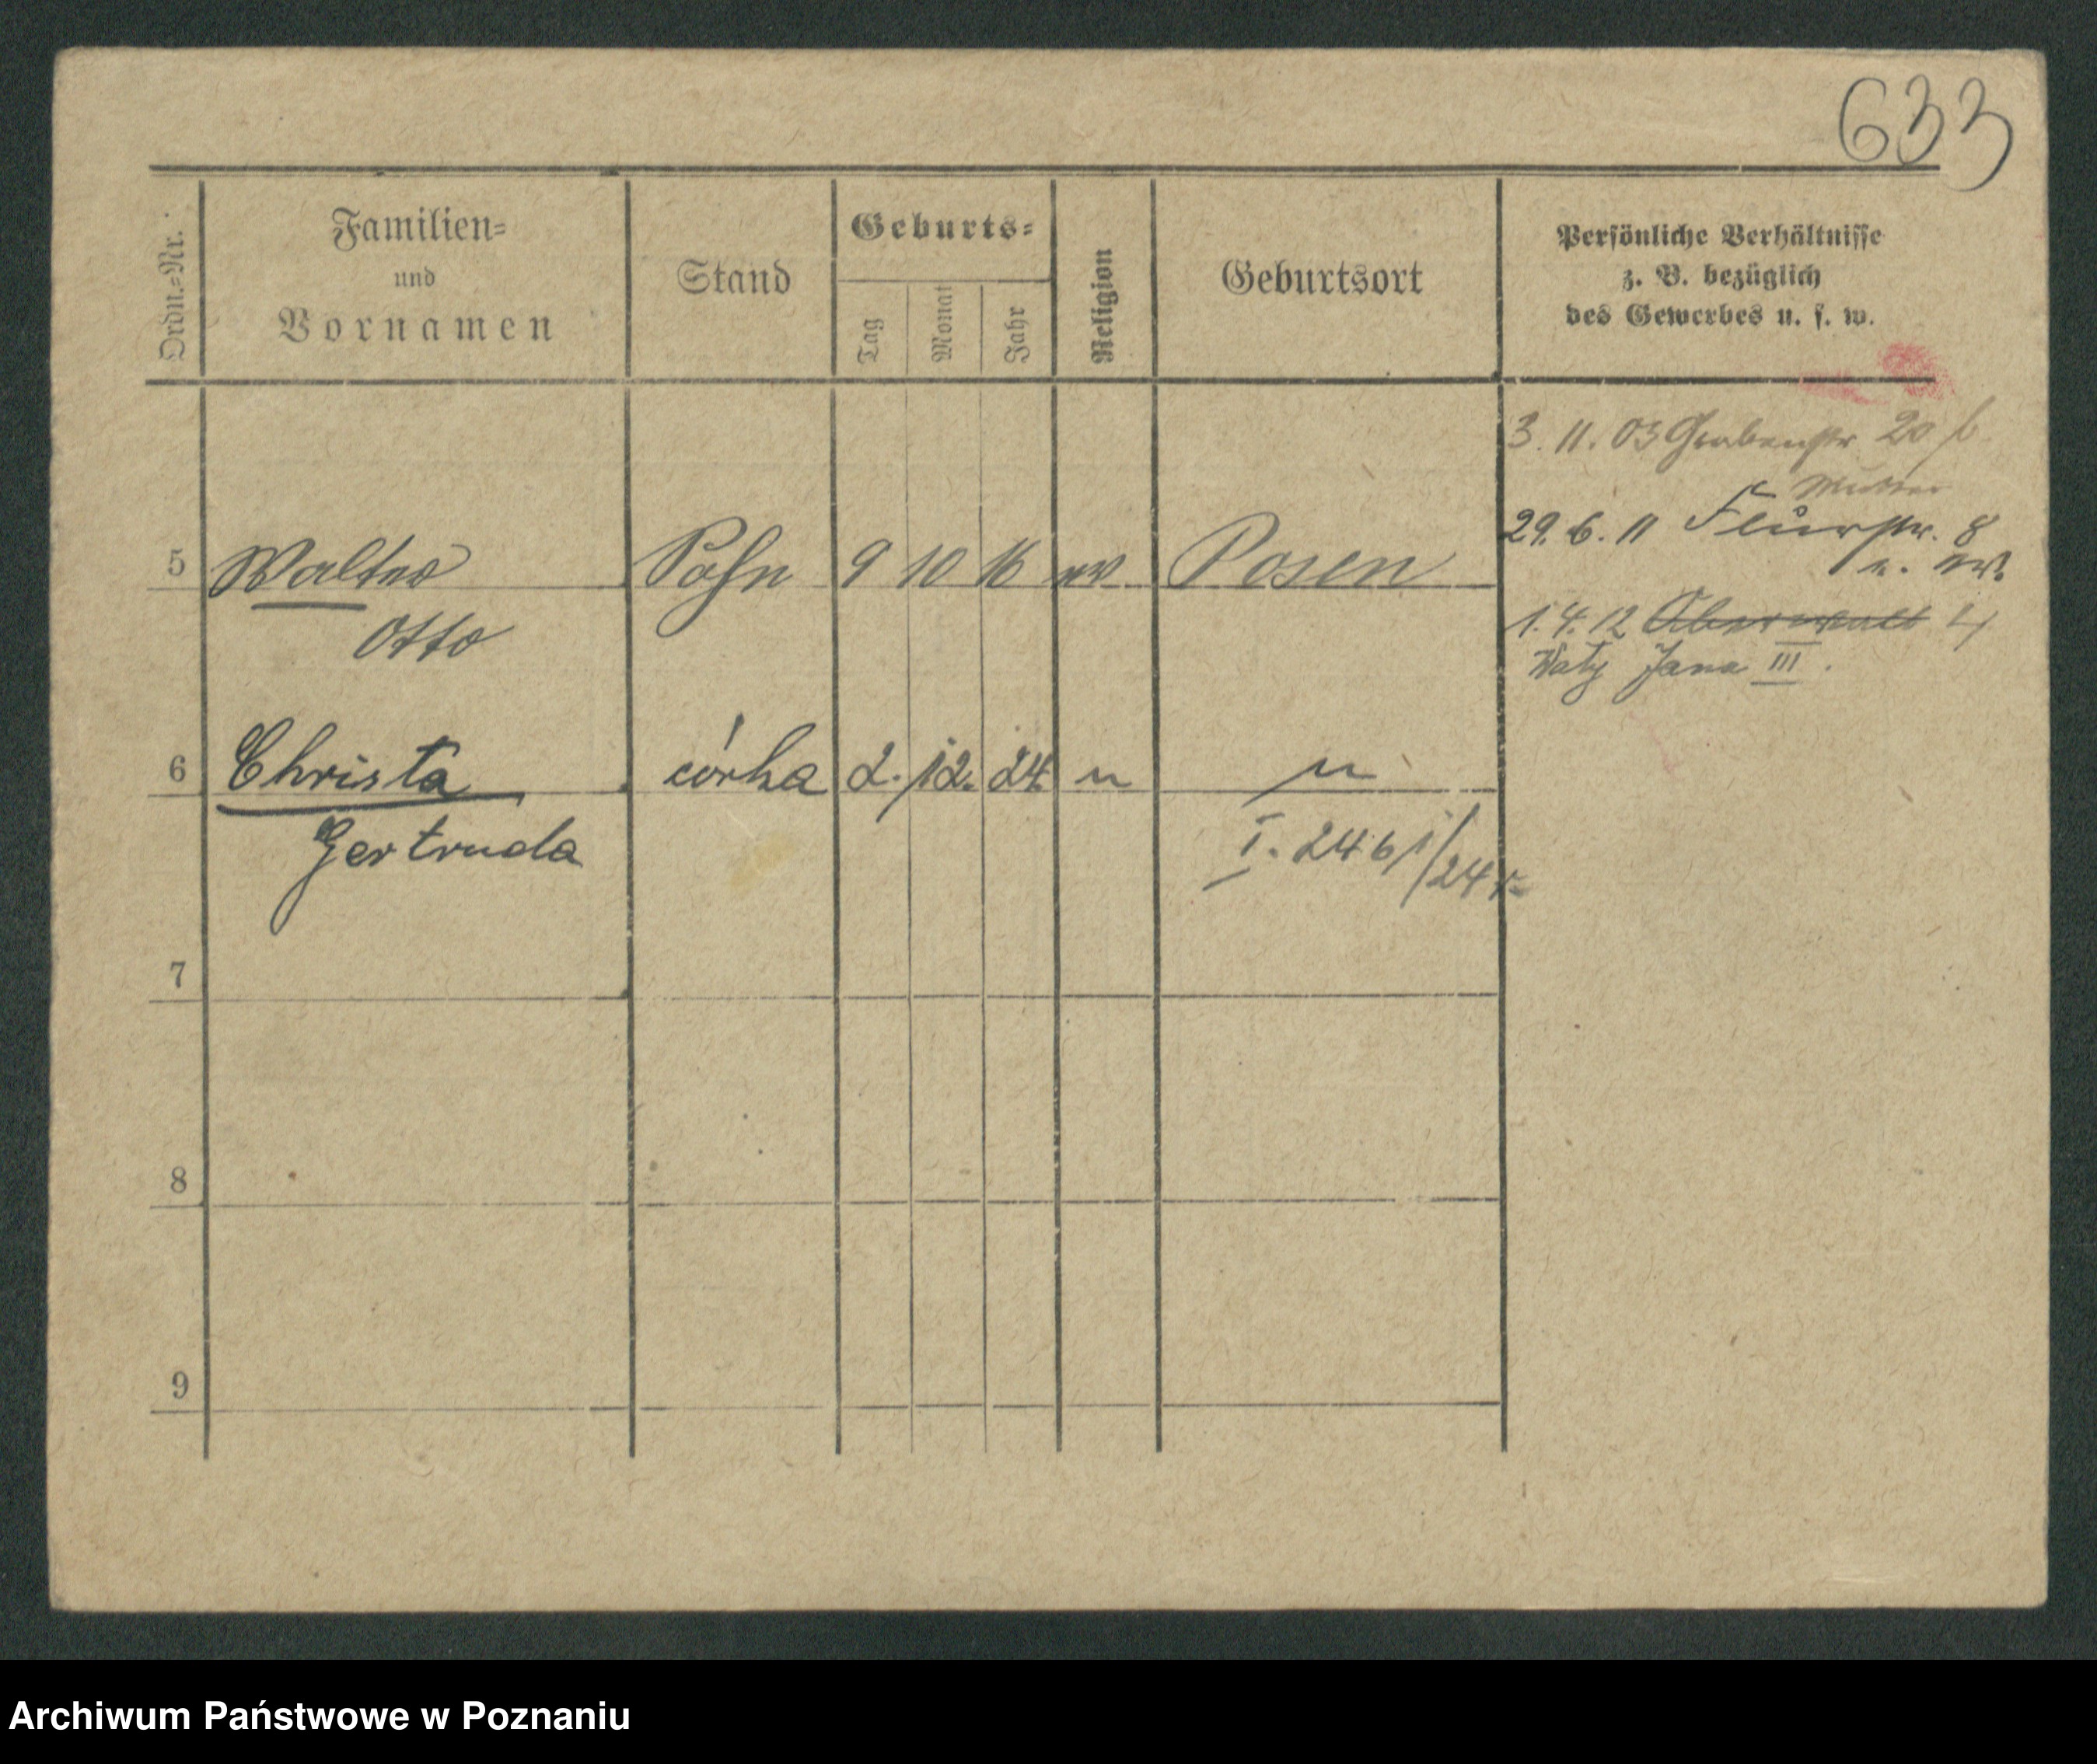 633
Ordn.-Nr.
Familien-
und
Vornamen
Stand
Geburts-
Tag
Monat
Jahr
Religion
Geburtsort
Persönliche Verhältnisse
z. B. bezüglich
des Gewerbes u. s. w.
3. 11. 03 Grabenstr 20
29. 6. 11 Flurstr. 8
5 Walter Sohn 9 10 16 ev Posen
Otto
1. 4. 12 4
Wały Jana III.
6 Christa córka 2. 12. 24 " "
Gertruda
I. 2461/24
7
8
9
Archiwum Państwowe w Poznaniu